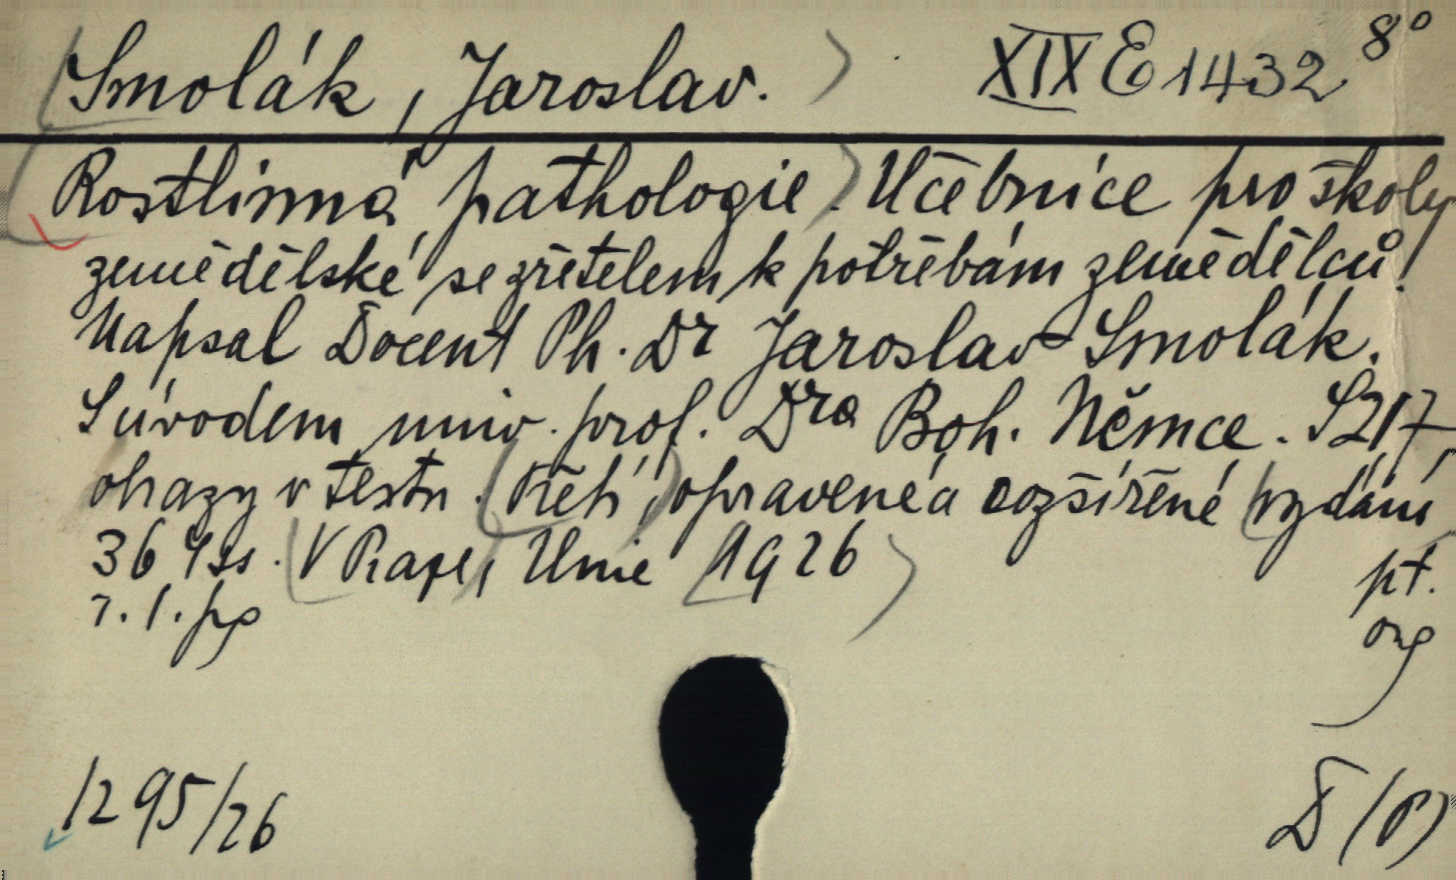 Smolák, Jaroslav. XIX E 1432 8°
Rostlinná pathologie. Učebnice pro školy
zemědělské se zřetelem k potřebám zemědělců.
Napsal Docent Ph. Dr Jaroslav Smolák.
S úvodem univ. prof. Dra Boh. Němce. S 217
obrazy v textu. Třetí, opravené a rozšířené vydání
364 ss. V Praze, Unie 1926
r. 1. pg
pt.
org
1295/26
D (P)